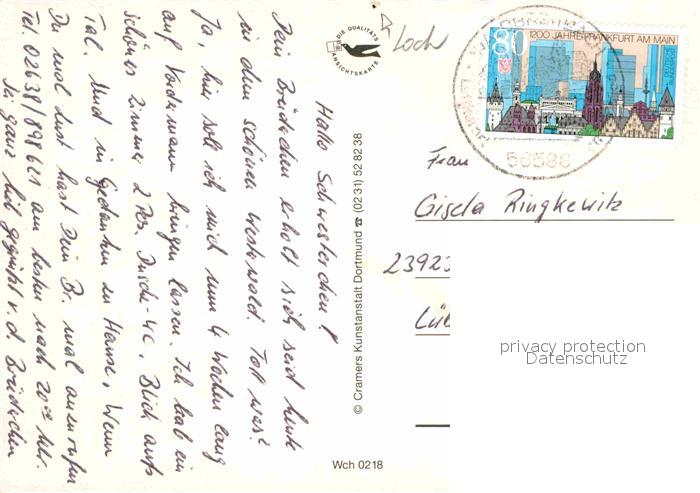 Hallo Schwesterchen!
Dein Brüderchen erholt sich seit heute
in dem schönen Westwald. Toll was?
Ja, hier soll ich mich nun 4 Wochen lang
auf Vordermann bringen lassen. Ich hab ein
schönes Zimmer, Dusche-WC. Blick aufs
Tal. Sind in Gedanken zu Hause. Wenn
Du mal Lust hast Dein Br. mal anzurufen
Tel. 02638/898621 am besten nach 20°° Uhr.
Sei ganz lieb gegrüßt v. d. Brüderchen
DIE QUALITÄTS
ANSICHTSKARTE
Loch
© Cramers Kunstanstalt Dortmund ☎ (02 31) 52 82 38
Wch 0218
80
1200 JAHRE FRANKFURT AM MAIN
56588
Frau
Gisela Ringkewitz
23923
Lüb
privacy protection
Datenschutz